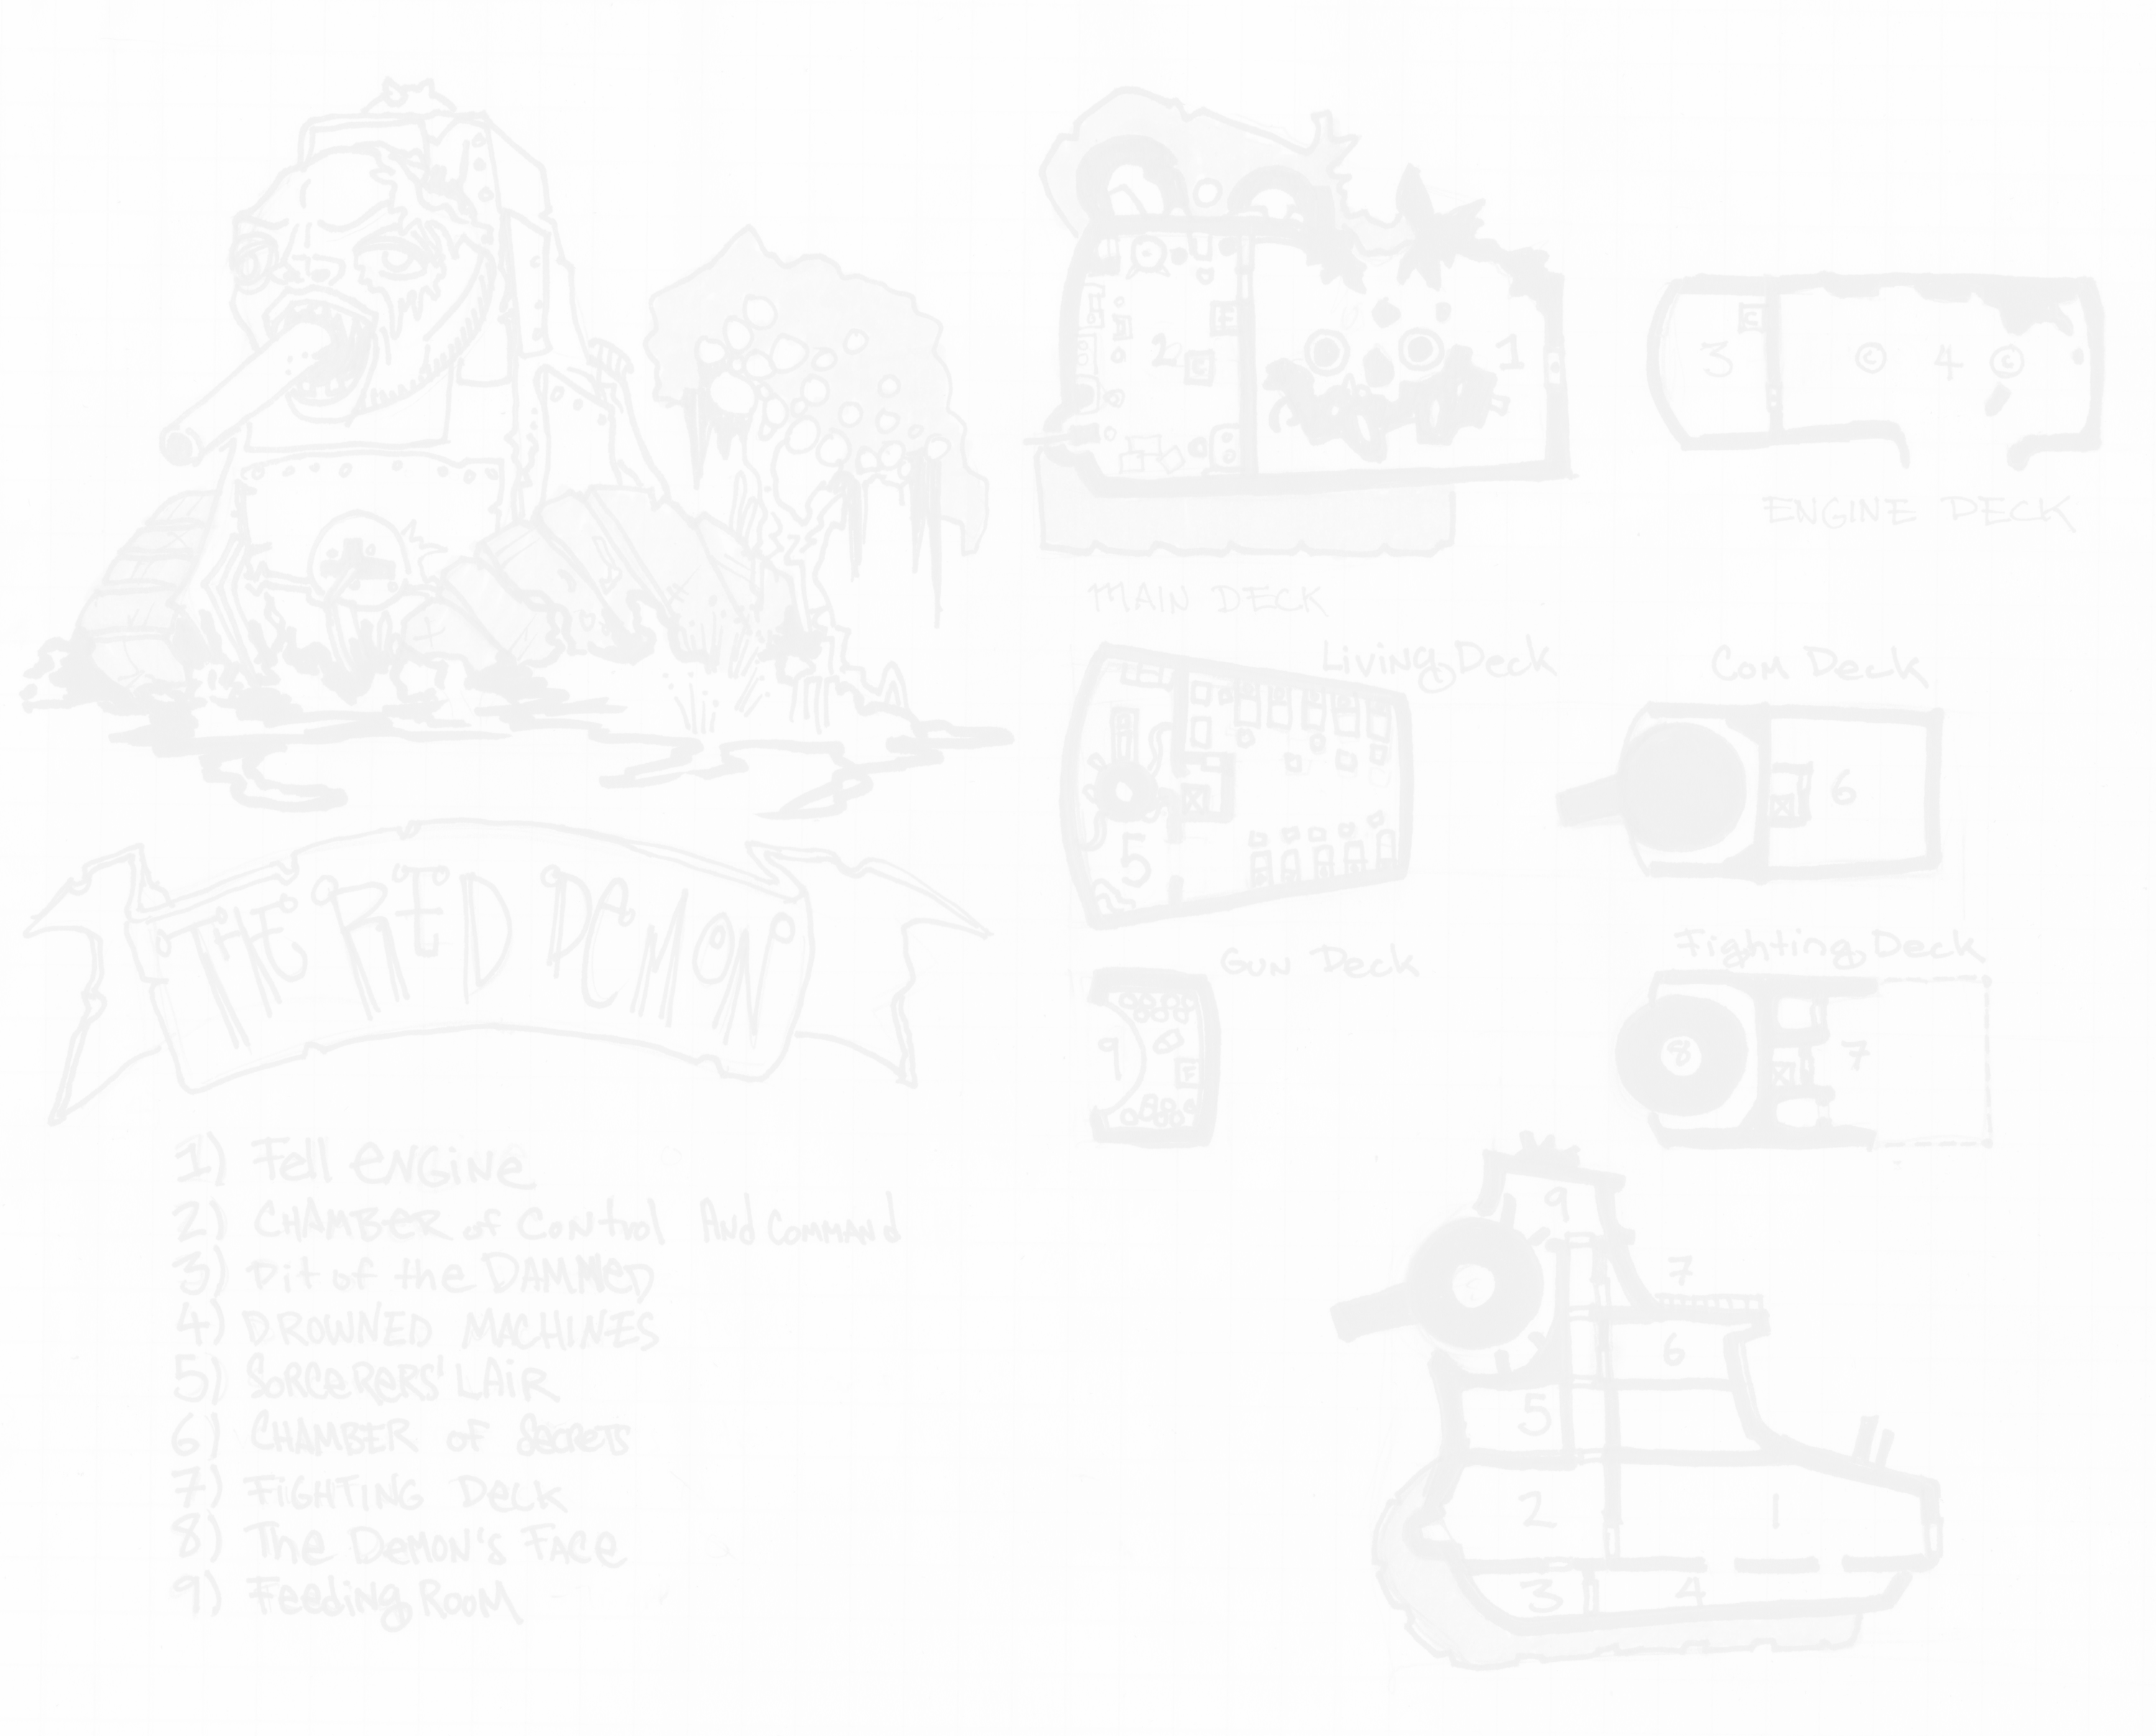 THE RED DEMON
1) Fell ENGiNe
2) CHAMBER of Control And COMMANd
3) Pit of the DAMMeD
4) DROWNED MACHINES
5) SORCeReRS' LAiR
6) CHAMBER OF SecReTS
7) FiGHTiNG DecK
8) The DeMON'S FACe
9) FeediNg ROOM
MAIN DECK
2
E
C
1
ENGINE DECK
3
C
C
4
C
Living Deck
5
Com Deck
6
GUN Deck
9
F
Fighting Deck
8
7
9
7
6
5
2
1
3
4